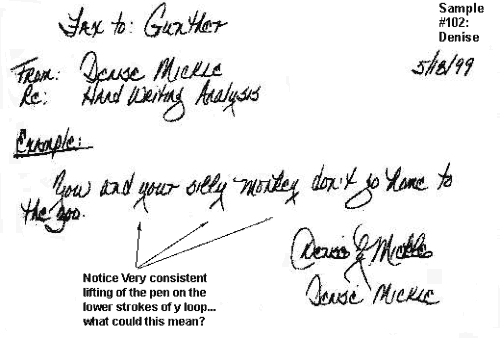 Sample
#102:
Denise
Fax to: Gunther
5/18/99
From: Denise Mickle
Re: Hand Writing Analysis
Example:
You and your silly monkey don't go home to
the zoo.
Denise J Mickle
Denise Mickle
Notice Very consistent
lifting of the pen on the
lower strokes of y loop...
what could this mean?